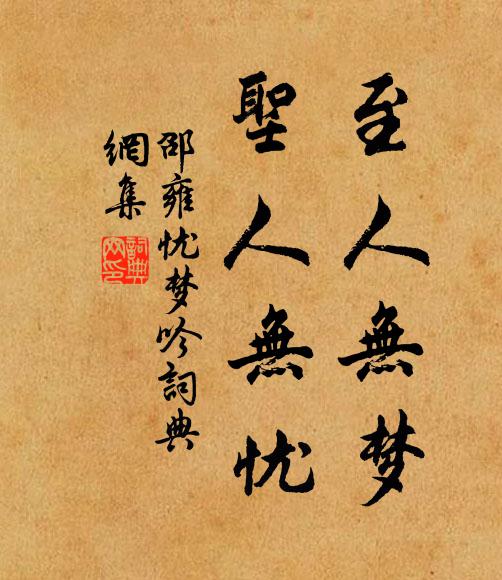 至人無梦
聖人無忧
邵雍忧梦吟詞典
網集
詞典
网印